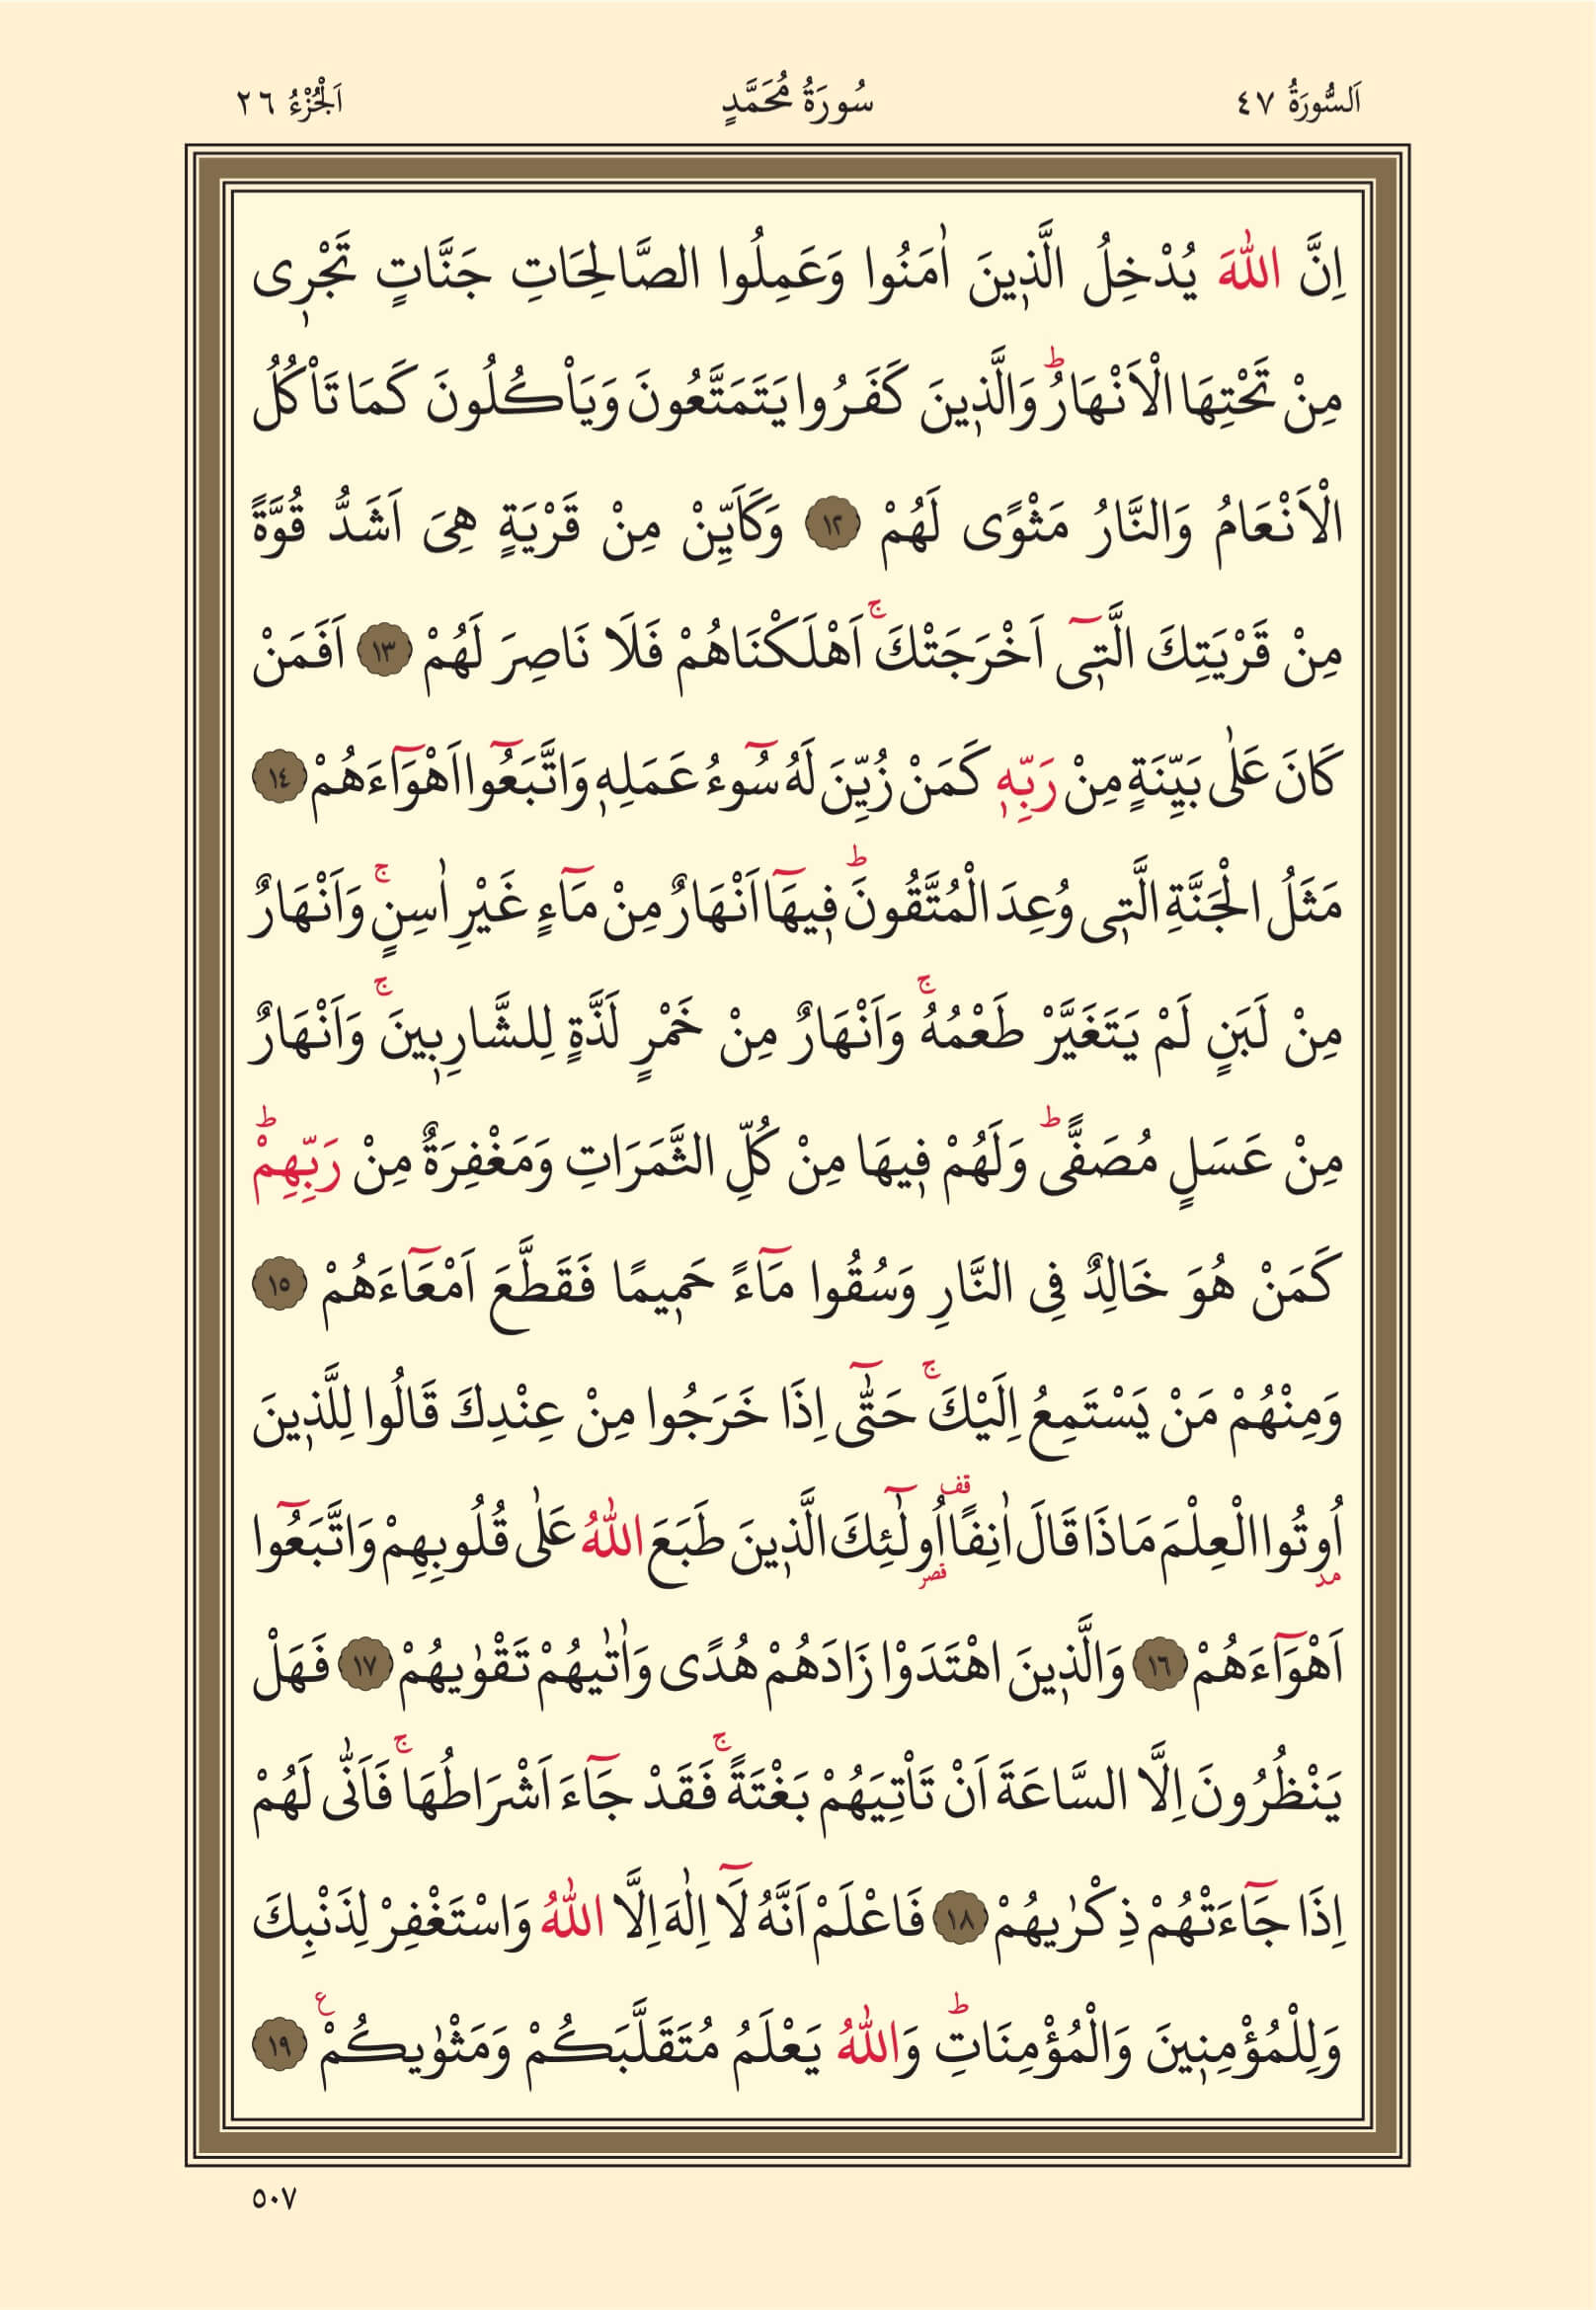 اَلسُّورَةُ ٤٧ سُورَةُ مُحَمَّدٍ اَلْجُزْءُ ٢٦
اِنَّ اللّٰهَ يُدْخِلُ الَّذ۪ينَ اٰمَنُوا وَعَمِلُوا الصَّالِحَاتِ جَنَّاتٍ تَجْر۪ى
مِنْ تَحْتِهَا الْاَنْهَارُۜ وَالَّذ۪ينَ كَفَرُوا يَتَمَتَّعُونَ وَيَاْكُلُونَ كَمَا تَاْكُلُ
الْاَنْعَامُ وَالنَّارُ مَثْوًى لَهُمْ ١٢ وَكَاَيِّنْ مِنْ قَرْيَةٍ هِىَ اَشَدُّ قُوَّةً
مِنْ قَرْيَتِكَ الَّت۪ٓى اَخْرَجَتْكَۚ اَهْلَكْنَاهُمْ فَلَا نَاصِرَ لَهُمْ ١٣ اَفَمَنْ
كَانَ عَلٰى بَيِّنَةٍ مِنْ رَبِّه۪ كَمَنْ زُيِّنَ لَهُ سُٓوءُ عَمَلِه۪ وَاتَّبَعُٓوا اَهْوَٓاءَهُمْ ١٤
مَثَلُ الْجَنَّةِ الَّت۪ى وُعِدَ الْمُتَّقُونَۜ ف۪يهَٓا اَنْهَارٌ مِنْ مَٓاءٍ غَيْرِ اٰسِنٍۚ وَاَنْهَارٌ
مِنْ لَبَنٍ لَمْ يَتَغَيَّرْ طَعْمُهُۚ وَاَنْهَارٌ مِنْ خَمْرٍ لَذَّةٍ لِلشَّارِب۪ينَۚ وَاَنْهَارٌ
مِنْ عَسَلٍ مُصَفًّىۜ وَلَهُمْ ف۪يهَا مِنْ كُلِّ الثَّمَرَاتِ وَمَغْفِرَةٌ مِنْ رَبِّهِمْۜ
كَمَنْ هُوَ خَالِدٌ فِى النَّارِ وَسُقُوا مَٓاءً حَم۪يمًا فَقَطَّعَ اَمْعَٓاءَهُمْ ١٥
وَمِنْهُمْ مَنْ يَسْتَمِعُ اِلَيْكَۚ حَتّٰٓى اِذَا خَرَجُوا مِنْ عِنْدِكَ قَالُوا لِلَّذ۪ينَ
اُو۫تُوا الْعِلْمَ مَاذَا قَالَ اٰنِفًا۠ اُو۬لٰٓئِكَ الَّذ۪ينَ طَبَعَ اللّٰهُ عَلٰى قُلُوبِهِمْ وَاتَّبَعُٓوا
اَهْوَٓاءَهُمْ ١٦ وَالَّذ۪ينَ اهْتَدَوْا زَادَهُمْ هُدًى وَاٰتٰيهُمْ تَقْوٰيهُمْ ١٧ فَهَلْ
يَنْظُرُونَ اِلَّا السَّاعَةَ اَنْ تَاْتِيَهُمْ بَغْتَةًۚ فَقَدْ جَٓاءَ اَشْرَاطُهَاۚ فَاَنّٰى لَهُمْ
اِذَا جَٓاءَتْهُمْ ذِكْرٰيهُمْ ١٨ فَاعْلَمْ اَنَّهُ لَٓا اِلٰهَ اِلَّا اللّٰهُ وَاسْتَغْفِرْ لِذَنْبِكَ
وَلِلْمُؤْمِن۪ينَ وَالْمُؤْمِنَاتِۜ وَاللّٰهُ يَعْلَمُ مُتَقَلَّبَكُمْ وَمَثْوٰيكُمْ۟ ١٩
٥٠٧